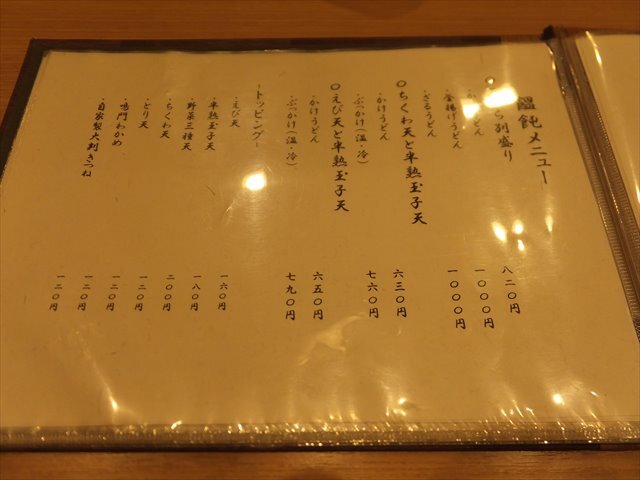 饂飩メニュー
ら別盛り
うどん 八二〇円
・釜揚げうどん 一〇〇〇円
・ざるうどん 一〇〇〇円
○ちくわ天と半熟玉子天
・かけうどん 六三〇円
・ぶっかけ(温・冷) 七六〇円
○えび天と半熟玉子天
・かけうどん 六五〇円
・ぶっかけ(温・冷) 七九〇円
-トッピング-
・えび天 一六〇円
・半熟玉子天 一八〇円
・野菜三種天 二〇〇円
・ちくわ天 一二〇円
・とり天 一二〇円
・鳴門わかめ 一二〇円
・自家製大判きつね 一二〇円